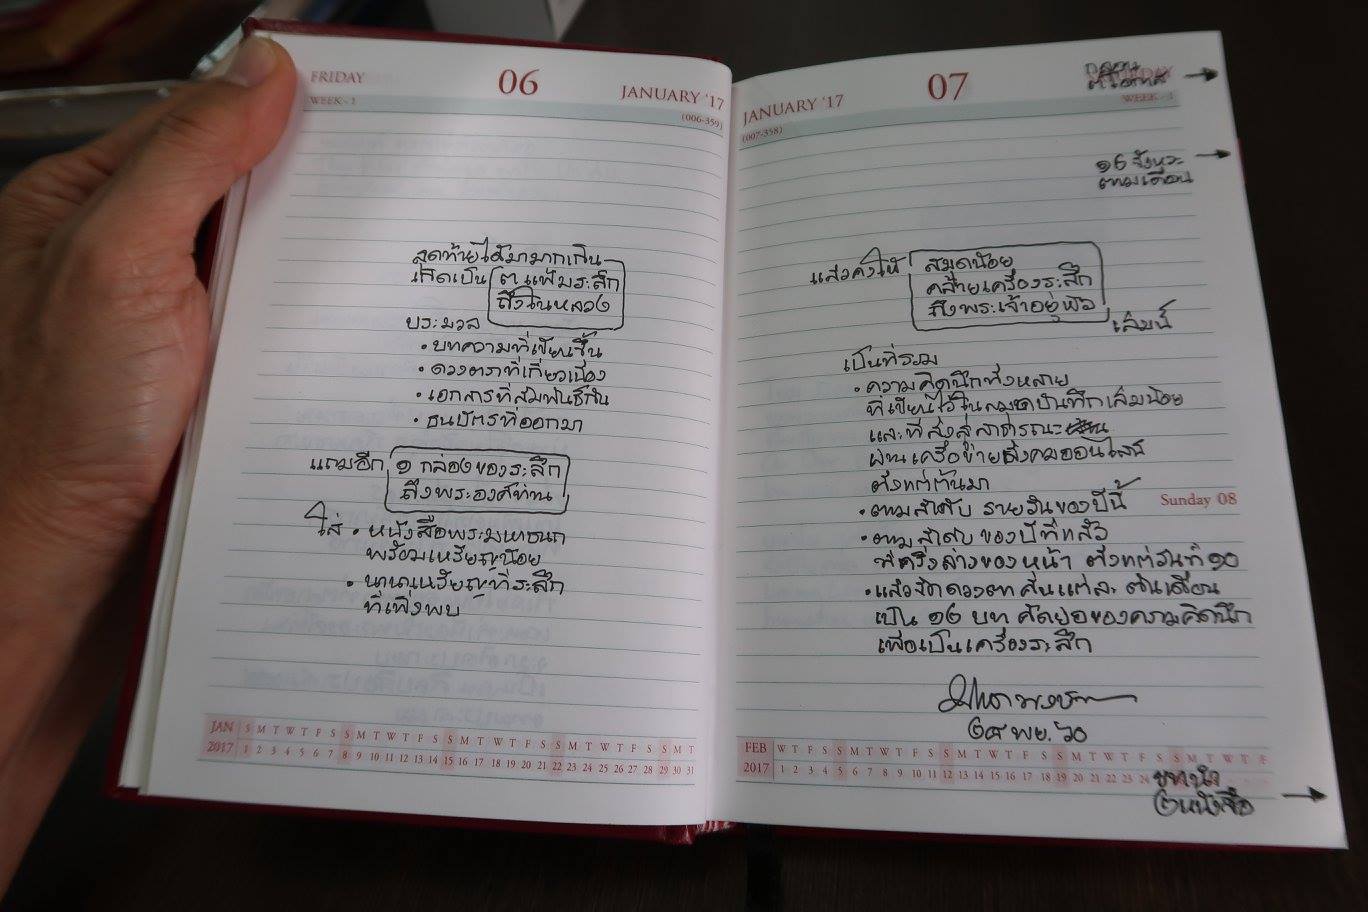 FRIDAY 06 JANUARY '17
WEEK - 1 (006-359)
สุดท้ายได้มามากเกิน
เกิดเป็น ๓ แฟ้มระลึก
ถึงในหลวง
ประมวล
• บทความที่เขียนขึ้น
• ดวงตราที่เกี่ยวเนื่อง
• เอกสารที่สัมพันธ์กัน
• ธนบัตรที่ออกมา
แถมอีก ๑ กล่องของระลึก
ถึงพระองค์ท่าน
ใส่ • หนังสือพระมหาชนก
พร้อมเหรียญน้อย
• นานาเหรียญที่ระลึก
ที่เพิ่งพบ
JAN S M T W T F S S M T W T F S S M T W T F S S M T W T F S S M T
2017 1 2 3 4 5 6 7 8 9 10 11 12 13 14 15 16 17 18 19 20 21 22 23 24 25 26 27 28 29 30 31
JANUARY '17 07
(007-358) WEEK - 1
๑๖ จังหวะ
ตามเดือน
แล้วคงให้ สมุดน้อย
คล้ายเครื่องระลึก
ถึงพระเจ้าอยู่หัว
เล่มนี้
เป็นที่รวม
• ความคิดนึกทั้งหลาย
ที่เขียนไว้ในสมุดบันทึกเล่มน้อย
และที่ส่งสู่สาธารณะ
ผ่านเครือข่ายสังคมออนไลน์
ตั้งแต่ต้นมา
• ตามลำดับ รายวันของปีนี้
Sunday 08
• ตามลำดับของปีที่แล้ว
ที่ครึ่งล่างของหน้า ตั้งแต่วันที่ ๑๐
• แล้วจัดดวงตราคั่นแต่ละต้นเดือน
เป็น ๑๒ บท คัดย่อของความคิดนึก
เพื่อเป็นเครื่องระลึก
๒๙ พย. ๖๐
FEB W T F S S M T W T F S S M T W T F S S M T W T F S S M T W T F
2017 1 2 3 4 5 6 7 8 9 10 11 12 13 14 15 16 17 18 19 20 21 22 23 24
บทนำ
๒ หนังสือ